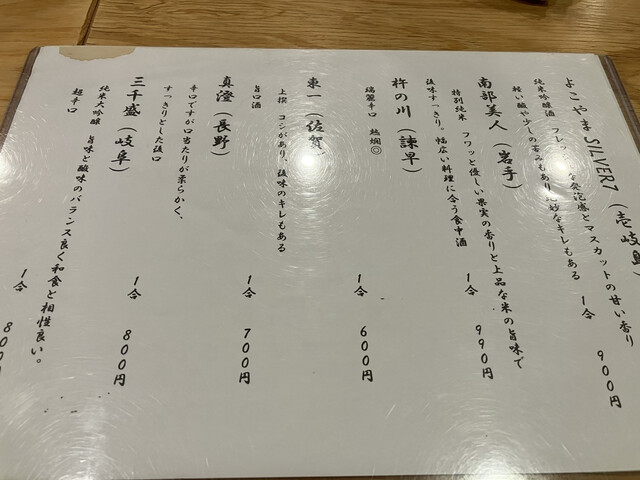 よこやまSILVER7（壱岐島
純米吟醸酒 フレッ な発泡感とマスカットの甘い香り
軽い酸や少しの苦みもあり絶妙なキレもある 1合 900円
南部美人（岩手）
特別純米 フワッと優しい果実の香りと上品な米の旨味で
後味すっきり。幅広い料理に合う食中酒 1合 990円
杵の川（諫早）
端麗辛口 熱燗◎ 1合 600円
東一（佐賀）
上撰 コシがあり、後味のキレもある
旨口酒 1合 700円
真澄（長野）
辛口ですが口当たりが柔らかく、
すっきりとした後口 1合 800円
三千盛（岐阜）
純米大吟醸 旨味と酸味のバランス良く和食と相性良い。
超辛口 1合 800